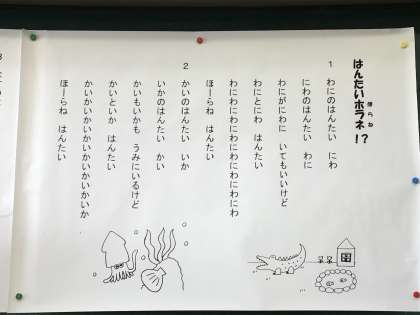 はんたいホラネ!?
ほらね
1
わにのはんたい にわ
にわのはんたい わに
わにがにわに いてもいいけど
わにとにわ はんたい
わにわにわにわにわにわにわにわ
ほーらね はんたい
2
かいのはんたい いか
いかのはんたい かい
かいもいかも うみにいるけど
かいといか はんたい
かいかいかいかいかいかいかいか
ほーらね はんたい